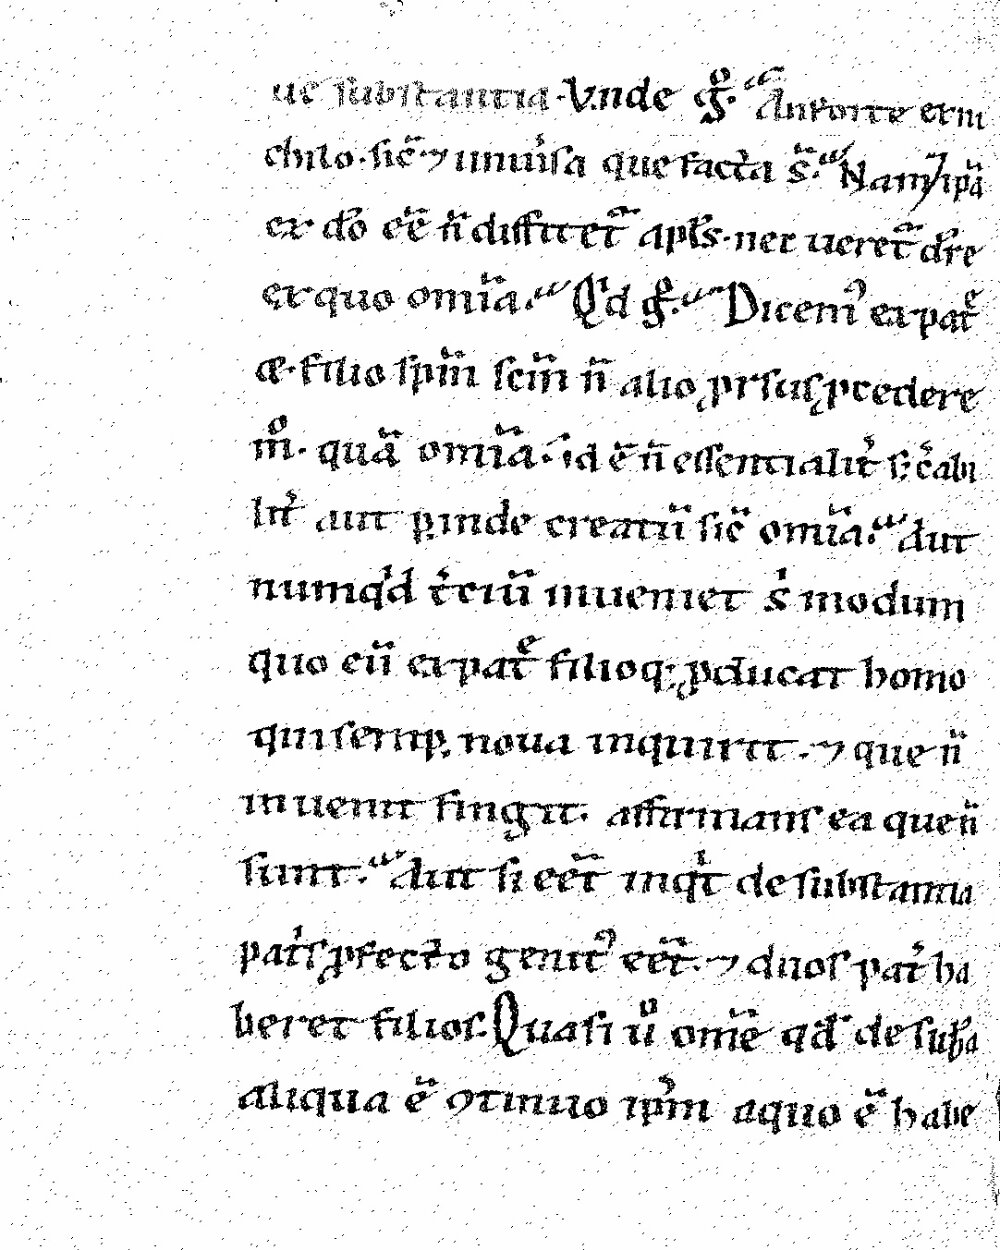 ue substantia. Vnde gͦ. An forte ex ni
chilo. sic̄ ⁊ uniuͥsa que facta s̄. Nam ⁊ ipā
ex dō eē n̄ diffitet᷑ apl̄s. nec ueret᷑ dr̄e
ex quo om̄ia. Qͥd gͦ. Dicemꝰ ex patͤ
⁊ filio sp̄m sc̄m n̄ alio ꝓrsus ꝓcedere
mͦ. quā om̄ia. id ē n̄ essentialit̓ s; c̓abi
lit̓ aut ꝑinde creatū sic̄ om̄ia. Aut
numqͥd t̓ciū inueniet s̓ modum
quo eū ex patͤ filioq; ꝓducat homo
qui semꝑ noua inquirit. ⁊ que n̄
inuenit fingit. affirmans ea que n̄
sunt. Aut si eēt inqͥt de substantia
patͥs ꝓfecto genitꝰ eēt. ⁊ duos pat̓ ha
beret filios. Quasi uͦ om̄e qd̄ de sub̄a
aliqua ē ꝯtinuo ip̄m a quo ē habe